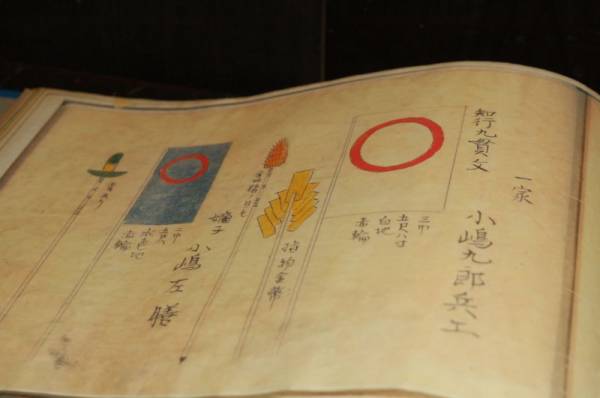 知行九貫文
一家
小嶋九郎兵工
三巾
五尺八寸
白地
赤輪
指物金幣
嫡子
小嶋左膳
二巾
五尺
水色地
赤輪